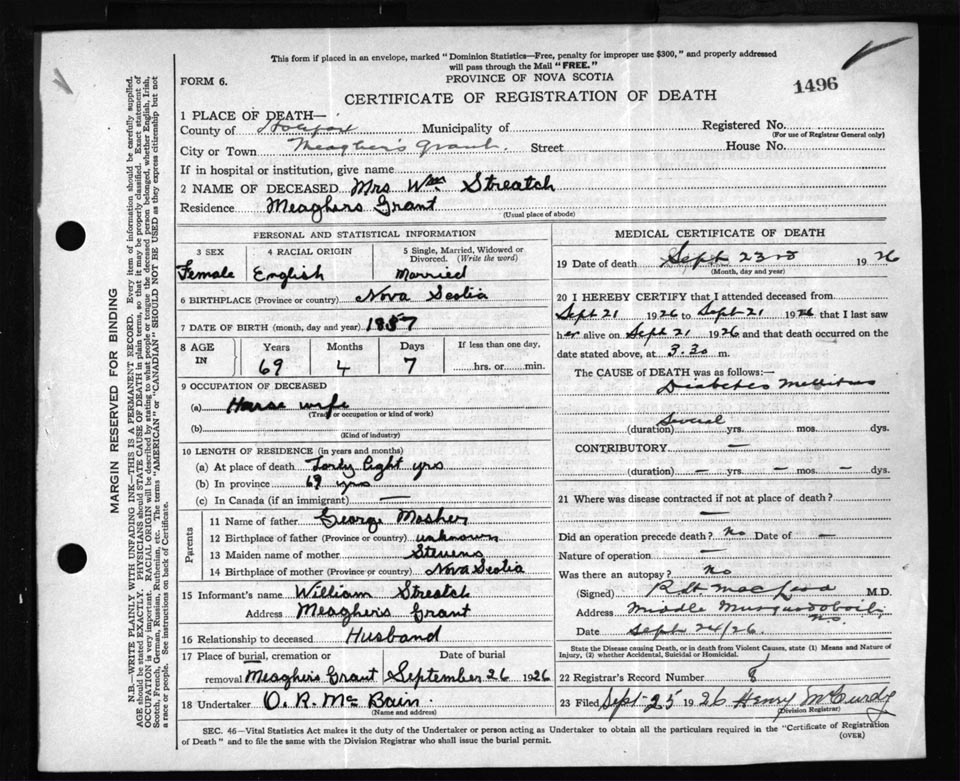 This form if placed in an envelope, marked "Dominion Statistics—Free, penalty for improper use $300," and properly addressed
will pass through the Mail "FREE."
FORM 6.
PROVINCE OF NOVA SCOTIA
1496
CERTIFICATE OF REGISTRATION OF DEATH
1 PLACE OF DEATH—
County of Municipality of Registered No.
(For use of Registrar General only)
City or Town Meagher's Grant. Street House No.
If in hospital or institution, give name
2 NAME OF DECEASED Mrs Wm Streatch
Residence Meaghers Grant
(Usual place of abode)
PERSONAL AND STATISTICAL INFORMATION
3 SEX 4 RACIAL ORIGIN 5 Single, Married, Widowed or Divorced. (Write the word)
Female English Married
6 BIRTHPLACE (Province or country) Nova Scotia
7 DATE OF BIRTH (month, day and year) 1857
8 AGE IN Years Months Days If less than one day,
69 4 7 hrs. or min.
9 OCCUPATION OF DECEASED
(a) House wife
(Trade or occupation or kind of work)
(b)
(Kind of industry)
10 LENGTH OF RESIDENCE (in years and months)
(a) At place of death Forty Eight yrs
(b) In province 69 yrs
(c) In Canada (if an immigrant) —
Parents
11 Name of father George Mosher
12 Birthplace of father (Province or country) unknown
13 Maiden name of mother Stevens
14 Birthplace of mother (Province or country) Nova Scotia
15 Informant's name William Streatch
Address Meaghers Grant
16 Relationship to deceased Husband
17 Place of burial, cremation or removal Date of burial
Meaghers Grant September 26 1926
18 Undertaker O. R. Mc Bain
(Name and address)
MEDICAL CERTIFICATE OF DEATH
19 Date of death Sept 23rd 1926
(Month, day and year)
20 I HEREBY CERTIFY that I attended deceased from
Sept 21 1926 to Sept 21 1926 that I last saw
her alive on Sept 21 1926 and that death occurred on
date stated above, at 3.30 m.
The CAUSE of DEATH was as follows:—
Diabetes Mellitus
Several
(duration) yrs. mos. dys.
CONTRIBUTORY —
(duration) — yrs. — mos. — dys.
21 Where was disease contracted if not at place of death?
—
Did an operation precede death? No Date of —
Nature of operation —
Was there an autopsy? No
(Signed) MacLeod M.D.
Address Middle Musquodoboit, N.S.
Date Sept 24/26.
State the Disease causing Death, or in death from Violent Causes, state (1) Means and Nature of
Injury, (2) whether Accidental, Suicidal or Homicidal.
22 Registrar's Record Number 8
23 Filed Sept 25 1926 Henry McCurdy
(Division Registrar)
SEC. 46—Vital Statistics Act makes it the duty of the Undertaker or person acting as Undertaker to obtain all the particulars required in the "Certificate of Registration
of Death" and to file the same with the Division Registrar who shall issue the burial permit.
(OVER)
MARGIN RESERVED FOR BINDING
N.B.—WRITE PLAINLY WITH UNFADING INK—THIS IS A PERMANENT RECORD. Every item of information should be carefully supplied.
AGE should be stated EXACTLY. PHYSICIANS should STATE CAUSE OF DEATH in plain terms, so that it may be properly classified. Exact statement of
OCCUPATION is very important. RACIAL ORIGIN will be described by stating to what people or tongue the deceased person belonged, whether English, Irish,
Scotch, French, German, Russian, Ruthenian, etc. The terms "AMERICAN" or "CANADIAN" SHOULD NOT BE USED as they express citizenship but not
a race or people. See instructions on back of Certificate.